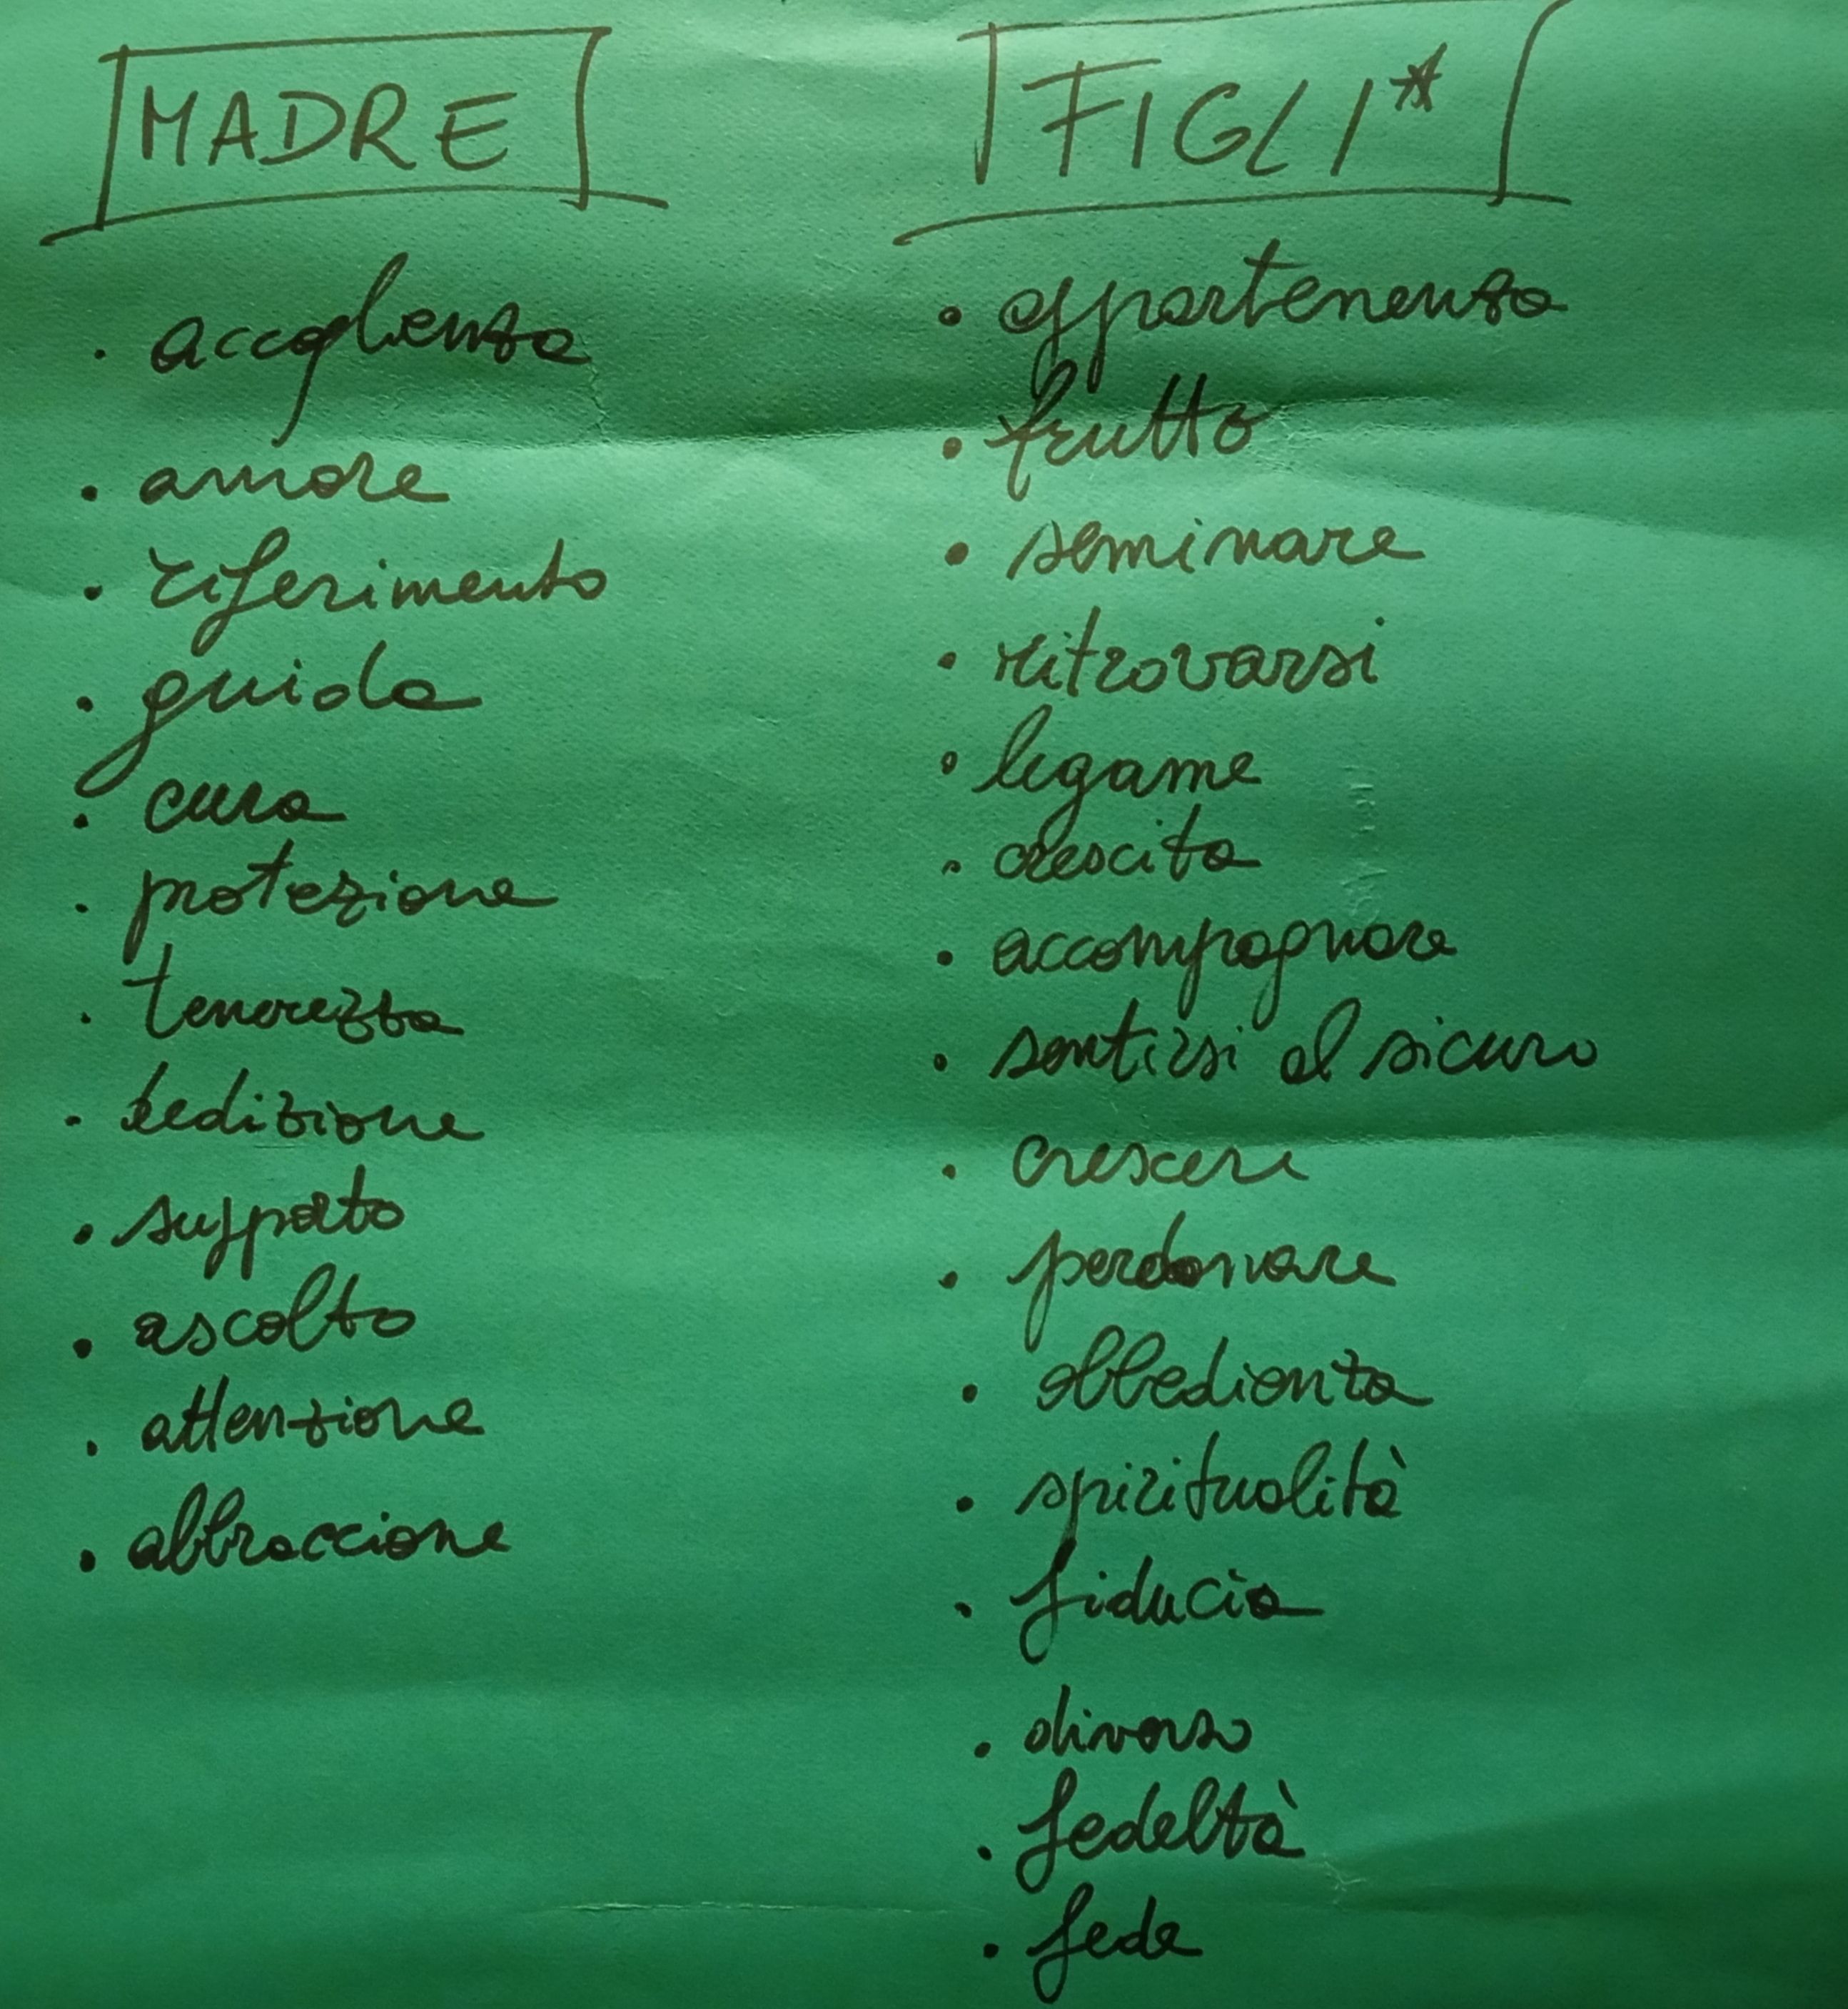 MADRE
· accoglienza
· amore
· riferimento
· guida
· cura
· protezione
· tenerezza
· supporto
· ascolto
· attenzione
· abbraccione
FIGLI*
· appartenenza
· frutto
· seminare
· ritrovarsi
· legame
· crescita
· accompagnare
· sentirsi al sicuro
· crescere
· perdonare
· obbedienza
· spiritualità
· fiducia
· diverso
· fedeltà
· fede